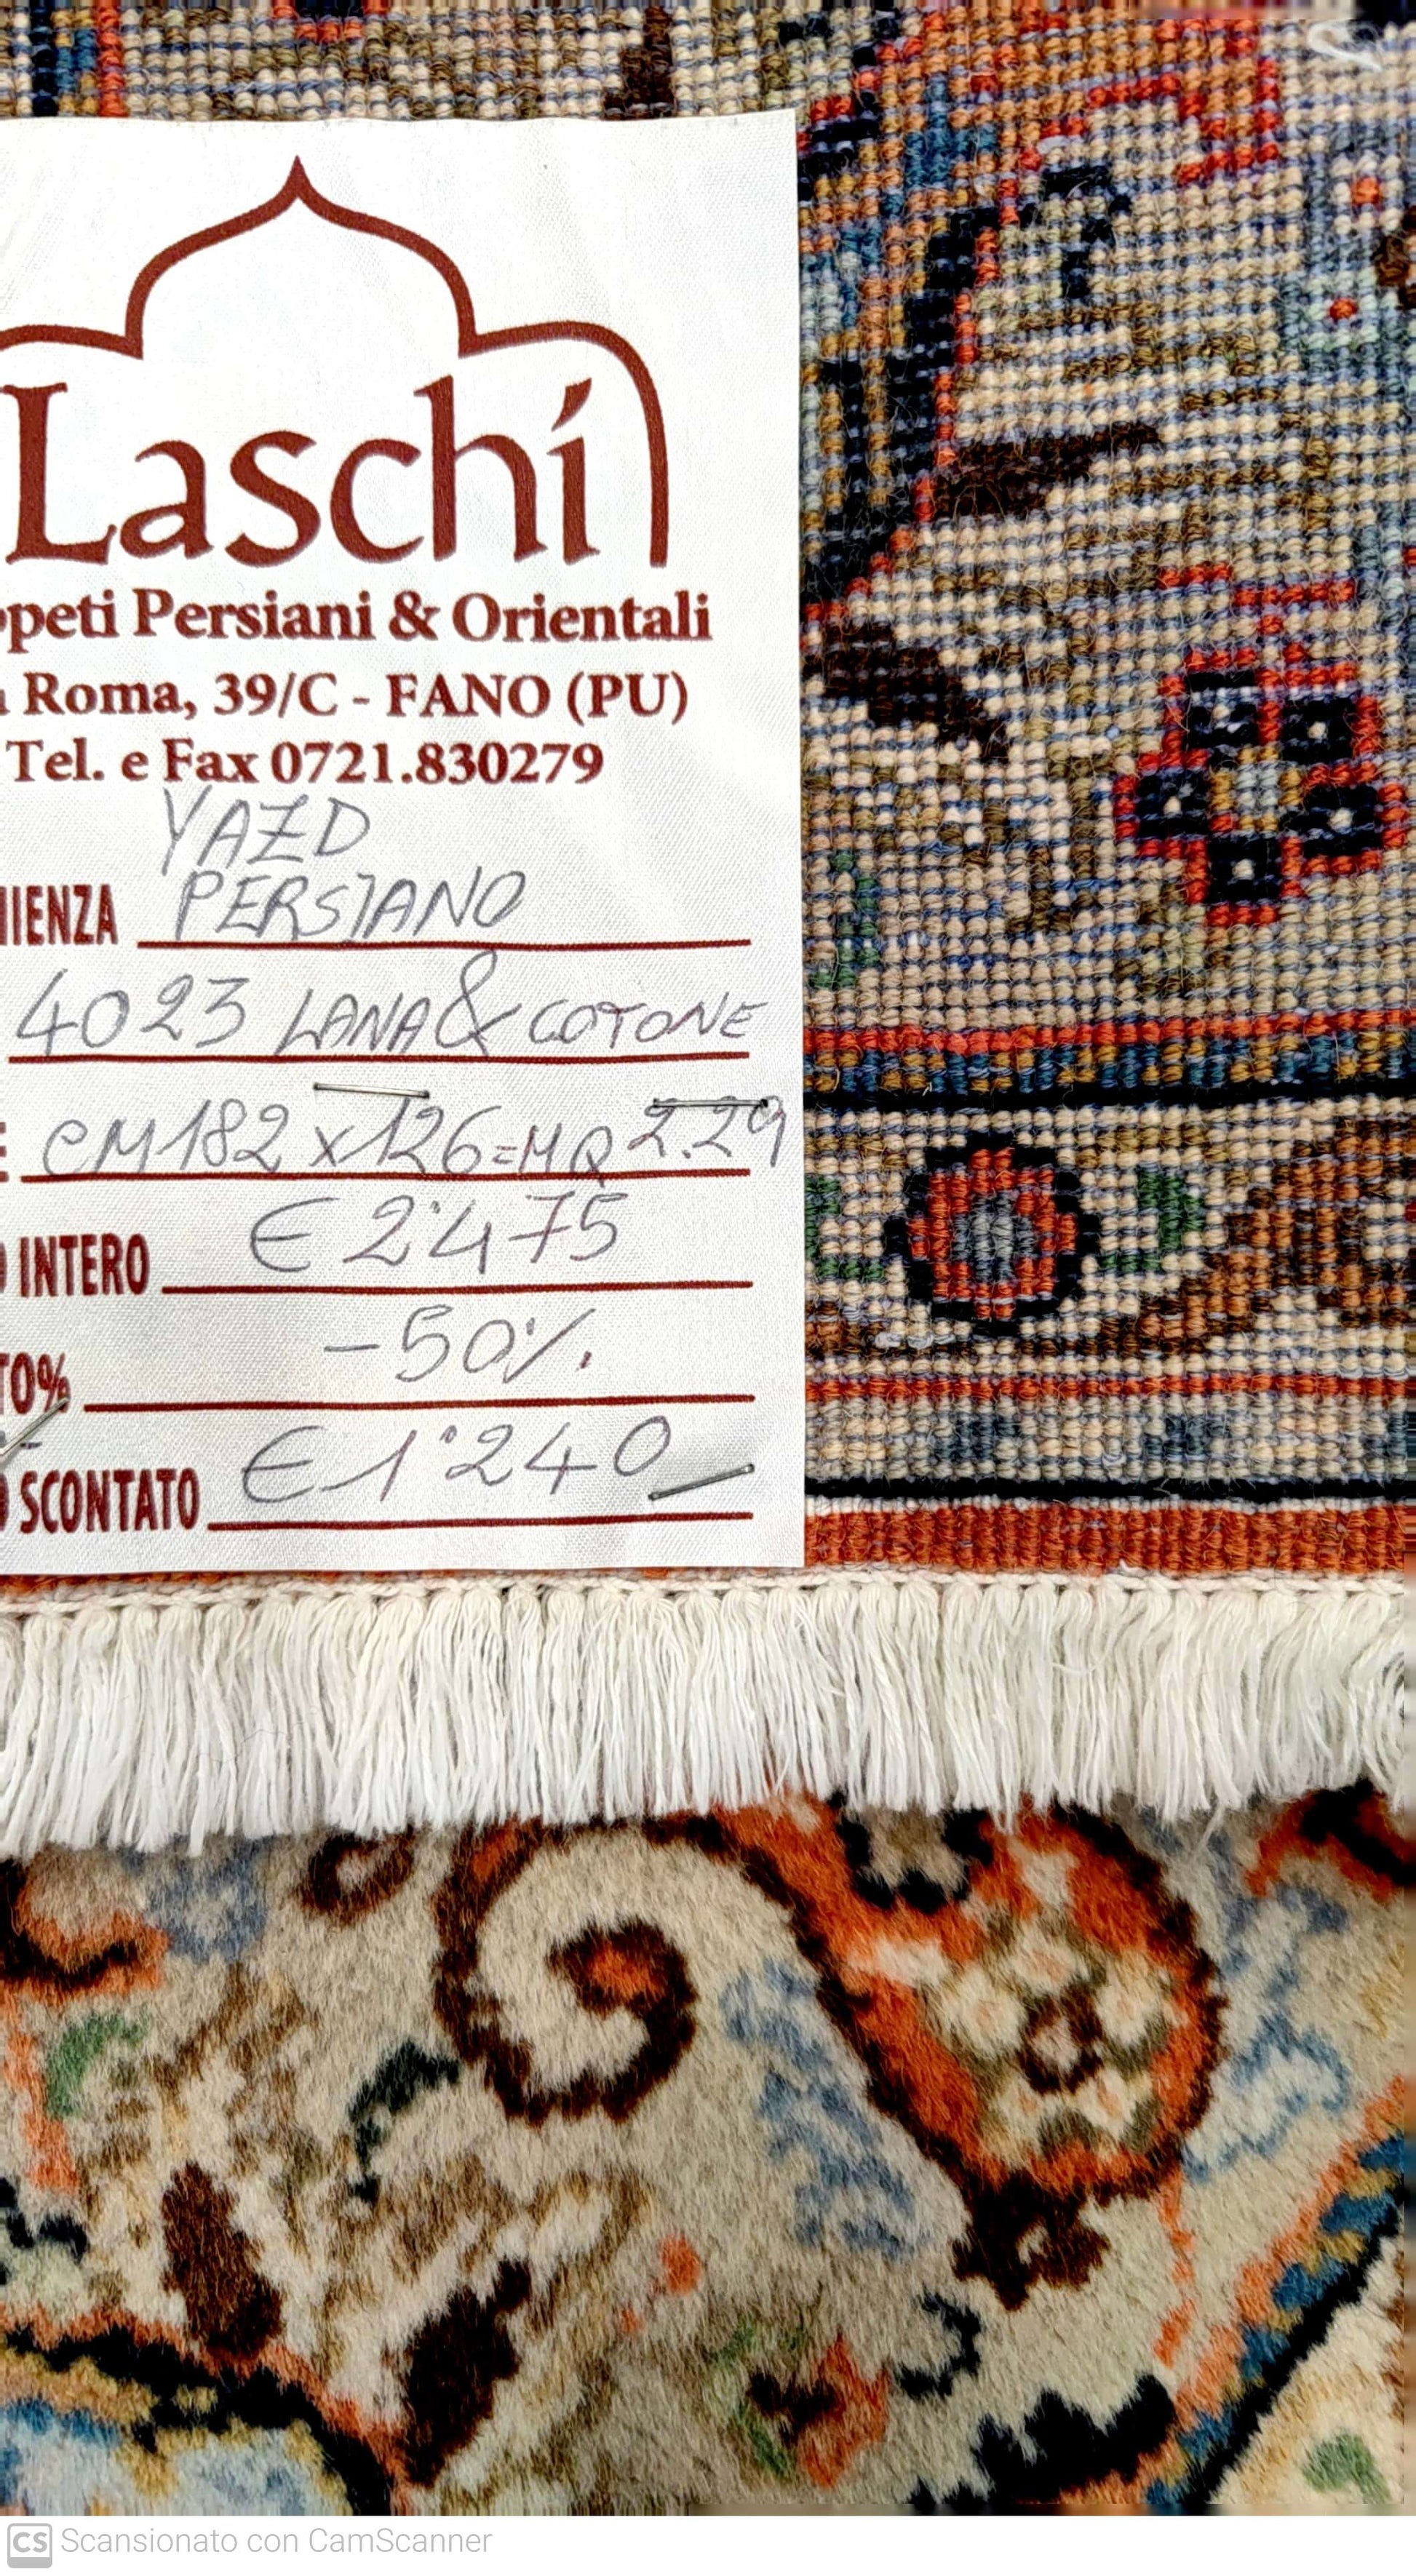 Laschi
peti Persiani & Orientali
Roma, 39/C - FANO (PU)
Tel. e Fax 0721.830279
YAZD
NIENZA PERSIANO
4023 LANA & COTONE
E CM 182 x 126 = MQ 2.29
O INTERO € 2'475
TO% -50%
O SCONTATO € 1'240
CS Scansionato con CamScanner